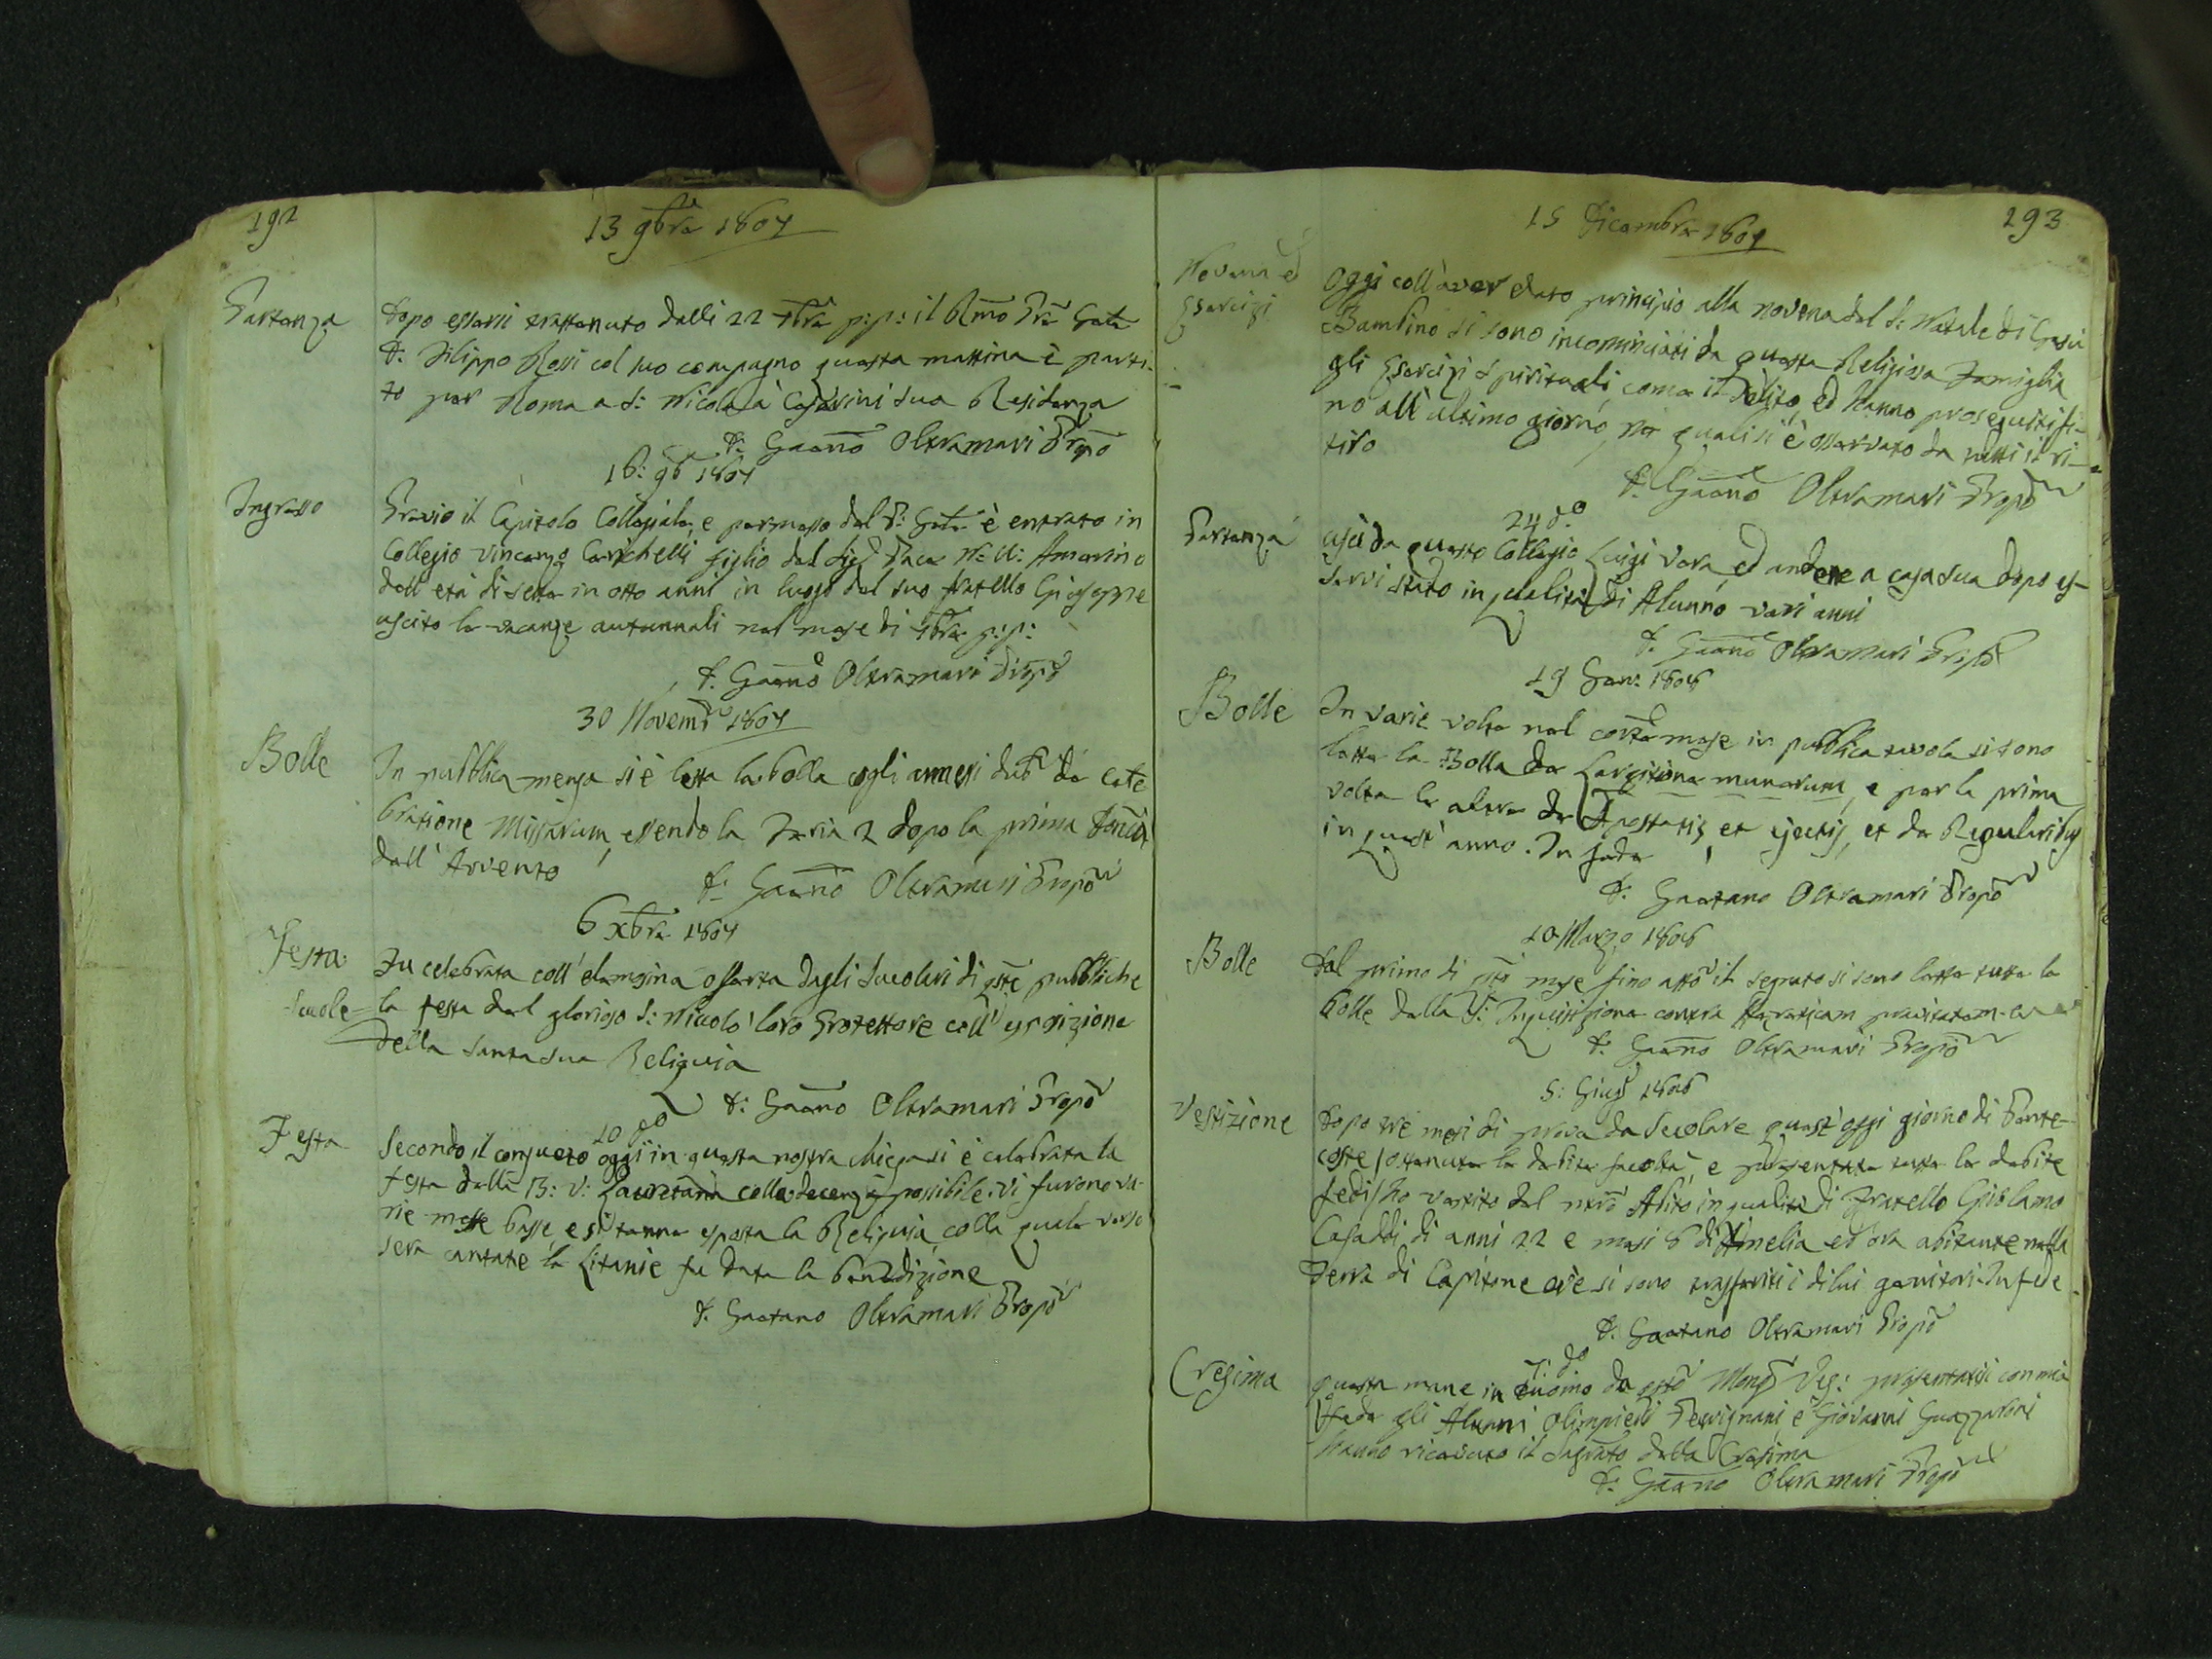 192
13 9bre 1807
Partenza
Dopo essersi trattenuto dalli 22 7bre p: p: il Rmo Pre Gnle
D: Filippo Rossi col suo compagno questa mattina è parti-
to per Roma a S: Nicola à Cesarini sua Residenza
D: Gaetno Oltremari Propo
16: 9b 1807
Ingresso
Previo il Capitolo Collegiale, e permesso del P: Gnle è entrato in
Collegio Vincenzo Carichelli figlio del Sigr N: U: Amerino
dell' età di sette in otto anni in luogo del suo fratello Giuseppe
uscito le vacanze autunnali nel mese di 7bre p: p:
D. Gaetno Oltremari Propo
30 Novembre 1807
Bolle
In pubblica mensa si è letta la bolla cogli annessi de Cele
bratione Missarum, essendo la Feria 2 dopo la prima Domca
dell' Avvento
D: Gaetno Oltremari Propo
6 Xbre 1807
Festa
Scuole
Fu celebrata coll' elemosina offerta dagli Scolari di qste pubbliche
la festa del glorioso S: Niccolò loro Protettore coll' esposizione
della santa sua Reliquia
D: Gaetno Oltremari Propo
10 do
Festa
Secondo il consueto oggi in questa nostra chiesa si è celebrata la
festa della B: V: Lauretana colla decenza possibile. Vi furono va-
rie messe basse, e si tenne esposta la Reliquia, colla quale verso
sera cantate le Litanie fu data la benedizione
D: Gaetano Oltremari Propo
15 Dicembre 1807
293
Novena ed
Esercizi
Oggi coll' aver dato principio alla novena del S: Natale di Gesù
Bambino si sono incominciati da questa Religiosa Famiglia
gli Esercizi Spirituali, come il solito, ed hanno proseguiti fi-
no all' ultimo giorno, ne' quali si è osservato da tutti il ri-
tiro
D: Gaetno Oltremari Propo
24 do
Partenza
Uscì da questo Collegio Luigi Vera, ed andette a casa sua dopo es-
servi stato in qualità di Alunno vari anni
D: Gaetno Oltremari Propo
19 Gen: 1808
Bolle
In varie volte nel corrte mese in pubblica tavola si sono
lette la Bolla de Largitione munerum, e per la prima
volta le altre de Apostatis, et ejectis, et de Regularibus
in quest' anno. In fede
D: Gaetano Oltremari Propo
10 Marzo 1808
Bolle
Dal primo di qsto mese fino atto il segnato si sono lette tutte le
bolle della S: Inquisizione contra Haereticam pravitatem
D: Gaetno Oltremari Propo
5: Giug 1808
Vestizione
Dopo tre mesi di prova da Secolare quest' oggi giorno di Pente-
coste / ottenuta la debita facoltà, e presentate tutte le debite
fedi / ho vestito del nrô Abito in qualità di Fratello Girolamo
Casaddi di anni 22 e mesi 6 di Amelia ed ora abitante nella
Terra di Capitone ove si sono trasferiti i di lui genitori. In fede
D: Gaetano Oltremari Propo
7: do
Cresima
Questa mane in Duomo da qsto Monsr Ves: presentatisi con mia
fede gli Alunni Olimpiedi Pervignani, e Giovanni Guazzaroni
hanno ricevuto il Sagrmto della Cresima
D: Gaetno Oltremari Propo